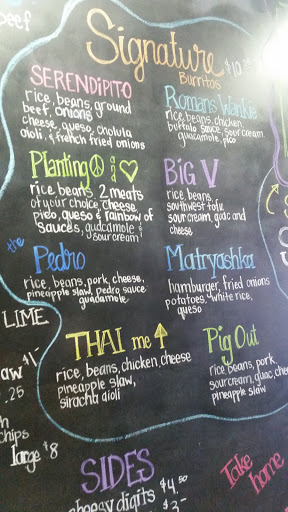 beef
Signature
Burritos
SERENDIPITO
rice, beans, ground
beef, onions
cheese, queso, cholula
aioli, & french fried onions
Romans Wankie
rice, beans, chicken,
buffalo sauce, sour cream
guacamole, pico
Planting ☮ & ♥
rice beans, 2 meats
of your choice, cheese,
pico, queso & rainbow of
sauces, guacamole &
sour cream
BIG V
rice, beans,
southwest tofu,
sour cream, guac and
cheese
the Pedro
rice, beans, pork, cheese,
pineapple slaw, pedro sauce
guacamole
Matryashka
hamburger, fried onions
potatoes, white rice,
queso
LIME
THAI me ↑
rice, beans, chicken, cheese
pineapple slaw,
siracha aioli
Pig Out
rice, beans, pork,
sour cream, guac, cheese
pineapple slaw
aw
.25
chips
large $8
SIDES
cheesy digits $4.50
Take
home